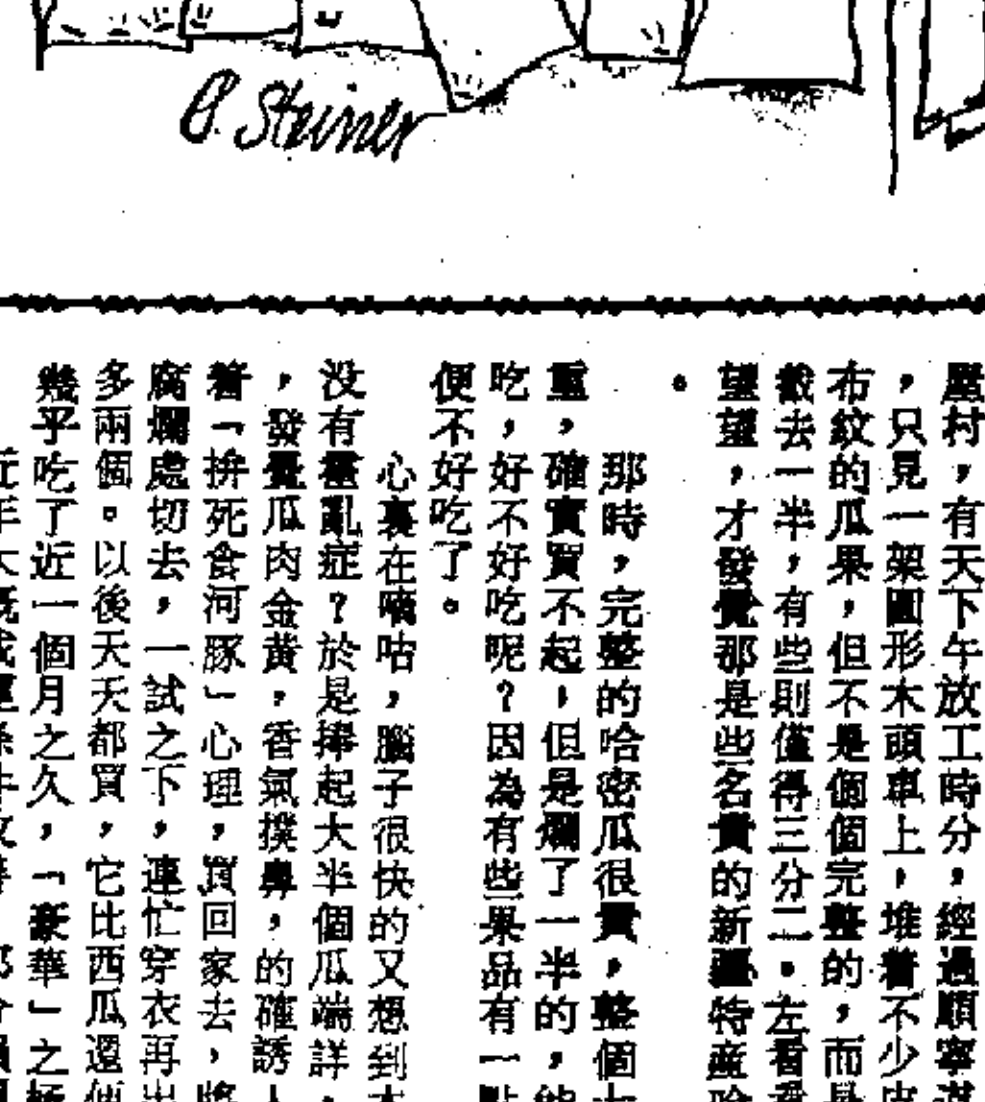 P. Steiner
屋村，有天下午放工時分，經過順寧道
，只見一架圓形木頭車上，堆着不少皮
布紋的瓜果，但不是個個完整的，而是
截去一半，有些則僅得三分二。左看
望望，才發覺那是些名貴的新疆特產哈
。
那時，完整的哈密瓜很貴，整個
重，確實買不起，但是爛了一半的，
吃，好不好吃呢？因為有些果品有一點
便不好吃了。
心裏在嘀咕，腦子很快的又想到
沒有霍亂症？於是捧起大半個瓜端詳，
，發覺瓜肉金黃，香氣撲鼻，的確誘人
着「拚死食河豚」心理，買回家去，將
腐爛處切去，一試之下，連忙穿衣再出
多兩個。以後天天都買，它比西瓜還便
幾乎吃了近一個月之久，「豪華」之極